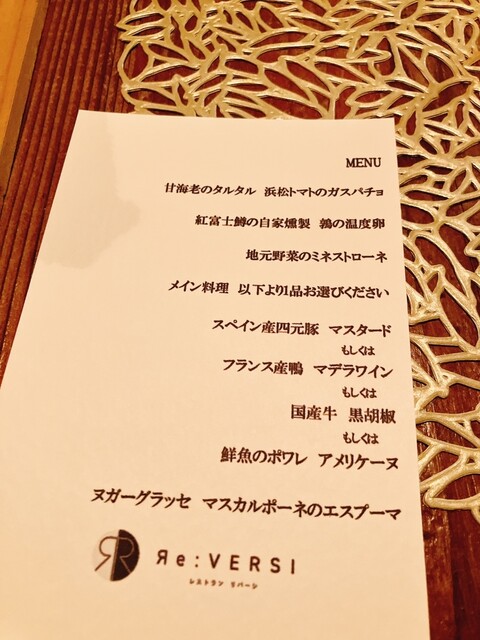 MENU
甘海老のタルタル 浜松トマトのガスパチョ
紅富士鱒の自家燻製 鶉の温度卵
地元野菜のミネストローネ
メイン料理 以下より1品お選びください
スペイン産四元豚 マスタード
もしくは
フランス産鴨 マデラワイン
もしくは
国産牛 黒胡椒
もしくは
鮮魚のポワレ アメリケーヌ
ヌガーグラッセ マスカルポーネのエスプーマ
Яe:VERSI
レストラン リバーシ